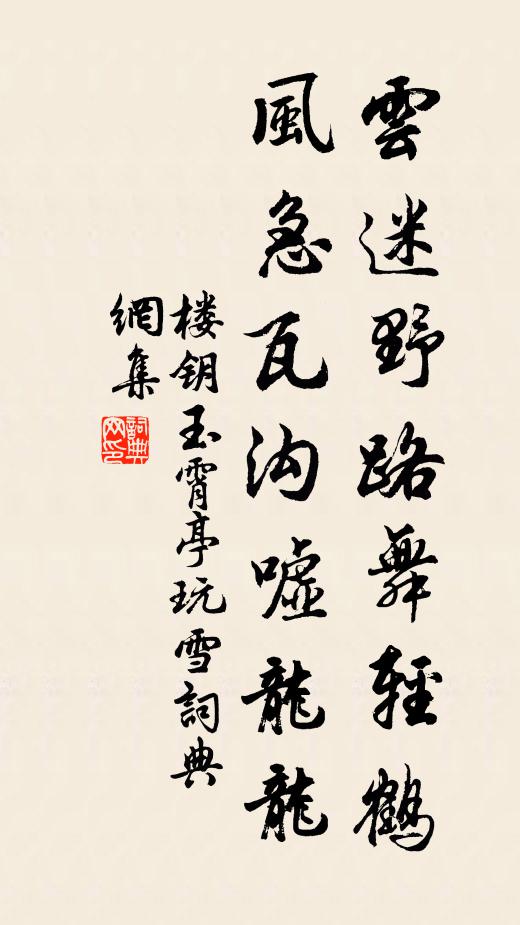 雲迷野路舞輕鶴
風急瓦沟嘘龍龍
楼钥玉霄亭玩雪詞典
網集
詞典
网印